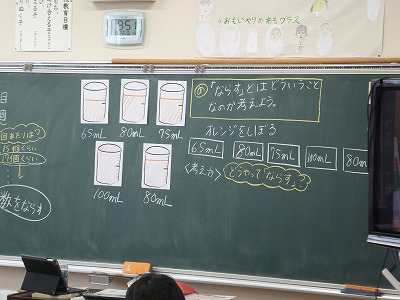 教育目標
おもいやりのあるクラス
め 「ならす」とはどういうこと
なのか考えよう。
65mL 80mL 75mL
100mL 80mL
オレンジをしぼる
65mL 80mL 75mL 100mL 80m
<考え方> どうやって「ならす」?
回あたりは?
15個くらい
数をならす